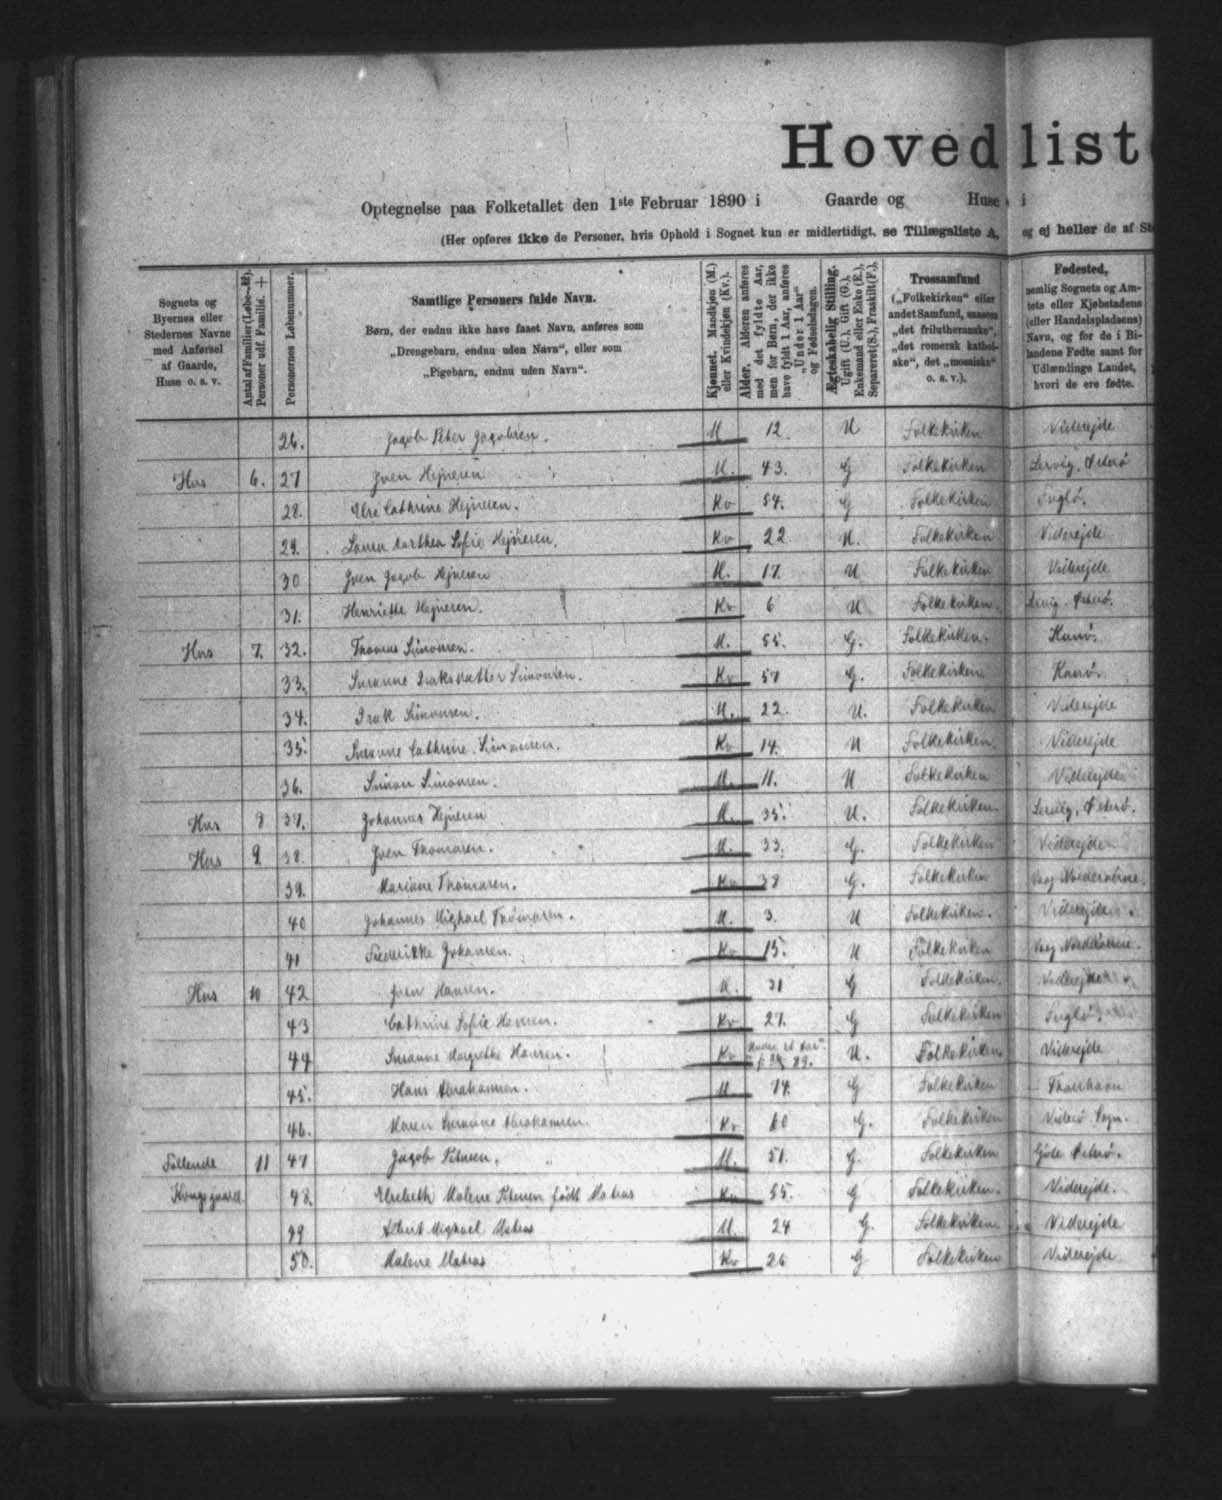 Hovedlist
Optegnelse paa Folketallet den 1ste Februar 1890 i Gaarde og Huse i
(Her opføres ikke de Personer, hvis Ophold i Sognet kun er midlertidigt, se Tillægsliste A, og ej heller de af St
Sognets og Byernes eller Stedernes Navne med Anførsel af Gaarde, Huse o. s. v.
Antal af Familier (Løbe-№). Personer udf. Familie. +
Personernes Løbenummer.
Samtlige Personers fulde Navn.
Børn, der endnu ikke have faaet Navn, anføres som
„Drengebarn, endnu uden Navn“, eller som
„Pigebarn, endnu uden Navn“.
Kjønnet. Mandkjøn (M.) eller Kvindekjøn (Kv.).
Alder. Alderen anføres med det fyldte Aar, men for Børn, der ikke have fyldt 1 Aar, anføres „Under 1 Aar“ og Fødselsdagen.
Ægteskabelig Stilling. Ugift (U.), Gift (G.), Enkemand eller Enke (E.), Separeret (S.), Fraskilt (F.),
Trossamfund („Folkekirken“ eller andet Samfund, saasom „det frilutheranske“, „det romersk katholske“, det „mosaiske“ o. s. v.).
Fødested, nemlig Sognets og Amtets eller Kjøbstadens (eller Handelspladsens) Navn, og for de i Bilandene Fødte samt for Udlændinge Landet, hvori de ere fødte.
26. Jagob Peter Jagobsen. M 12 U Folkekirken Viderejde
Hus 6. 27 Joen Hejnesen M. 43. G Folkekirken Lervig, Østerø
28. Cathrine Hejnesen. Kv 54. G Folkekirken Fuglø.
29. Sofie Hejnesen. Kv 22 U. Folkekirken Viderejde
30 Joen Jagob Hejnesen M. 17. U Folkekirken Viderejde
31. Henriette Hejnesen. Kv 6 U Folkekirken. Lervig, Østerø.
Hus 7. 32. Thomas Simonsen. M. 55. G. Folkekirken. Kunø.
33. Susanne Isaksdatter Simonsen. Kv 57 G. Folkekirken Kunø.
34. Isak Simonsen. M. 22. U. Folkekirken Viderejde
35. Susanne Cathrine Simonsen. Kv 14. U Folkekirken. Viderejde
36. Simon Simonsen. M. 11. U Folkekirken Viderejde
Hus 8 37. Johannes Hejnesen M. 35. U. Folkekirken. Lervig, Østerø.
Hus 9. 38. Joen Thomasen. M. 33. G. Folkekirken Viderejde
39. Marianne Thomasen. Kv 38 G. Folkekirken Vaag Norderøerne.
40 Johannes Mighael Thomasen. M. 3. U Folkekirken. Viderejde.
41 Frederikke Johansen. Kv 15. U Folkekirken Vaag Norderøerne.
Hus 10 42 Joen Hansen. M. 31 G Folkekirken. Viderejde
43 Cathrine Sofie Hansen. Kv 27. G Folkekirken Fuglø.
44 Susanne Margrethe Hansen. Kv Under et Aar 89. U. Folkekirken Viderejde
45. Hans Abrahamsen. M 74. G Folkekirken Thorshavn
46. Maren Susanne Abrahamsen. Kv 60 G. Folkekirken Viderø Sogn.
Fallende 11 47 Jagob Petersen. M. 51. G. Folkekirken Gjote Østerø.
Kongsgaard. 48. Elsebeth Malene Petersen født Matras Kv 55. G Folkekirken. Viderejde.
49 Albert Mighael Matras M. 24 G. Folkekirken Viderejde
50. Malene Matras Kv 26 G Folkekirken Viderejde.